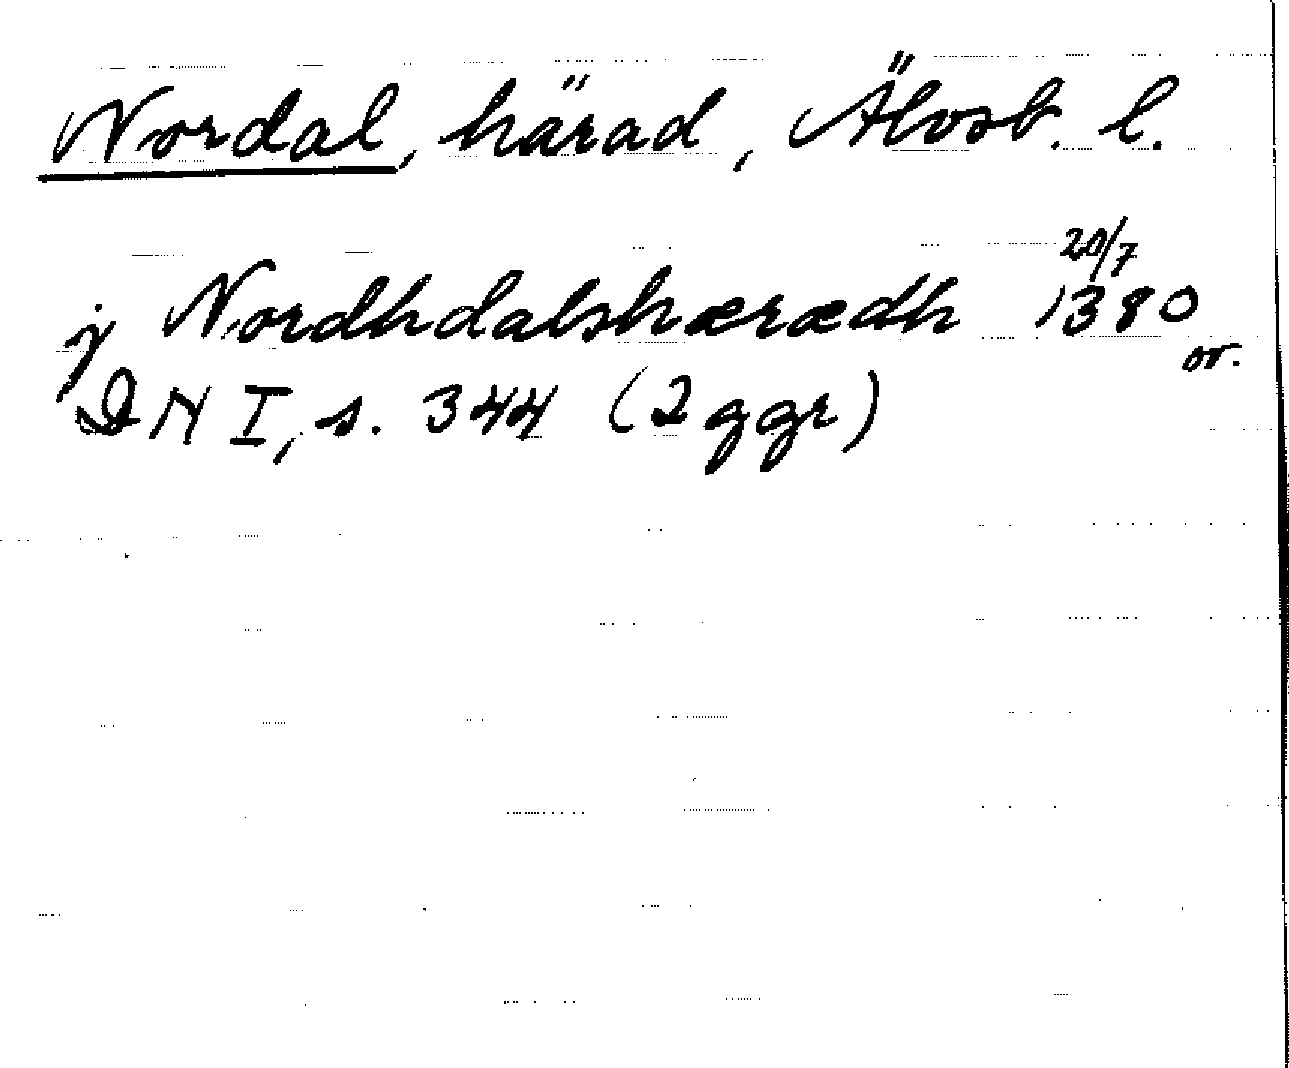 Nordal, härad, Älvsb. l.
j Nordhdalshærædh 20/7 1380 or.
DN I, s. 344 (2 ggr)